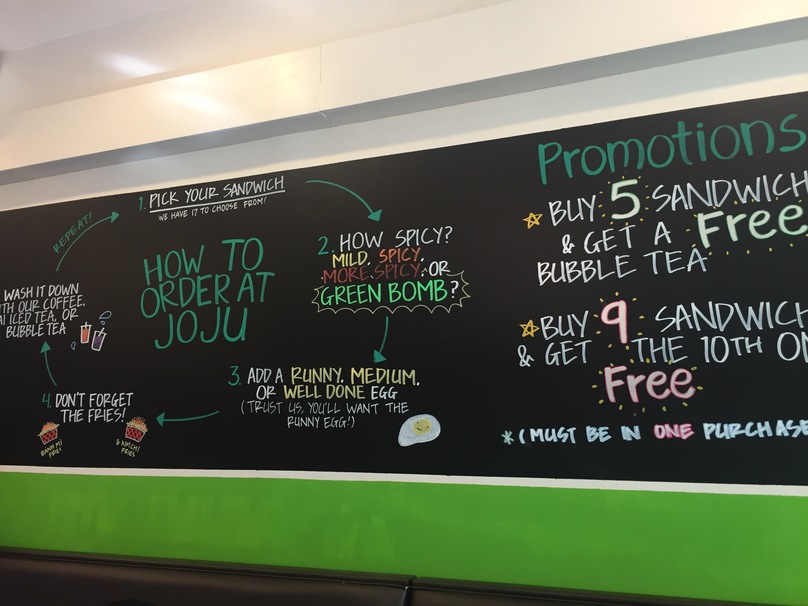 HOW TO
ORDER AT
JOJU
1. PICK YOUR SANDWICH
WE HAVE 17 TO CHOOSE FROM!
2. HOW SPICY?
MILD, SPICY,
MORE SPICY, OR
GREEN BOMB?
3. ADD A RUNNY, MEDIUM,
OR WELL DONE EGG
(TRUST US, YOU'LL WANT THE
RUNNY EGG!)
4. DON'T FORGET
THE FRIES!
BANH MI
FRIES
KIMCHI
FRIES
WASH IT DOWN
OUR COFFEE,
ICED TEA, OR
BUBBLE TEA
REPEAT!
Promotions
BUY 5 SANDWICH
& GET A Free
BUBBLE TEA
BUY 9 SANDWICH
& GET THE 10TH
Free
*(MUST BE IN ONE PURCHASE